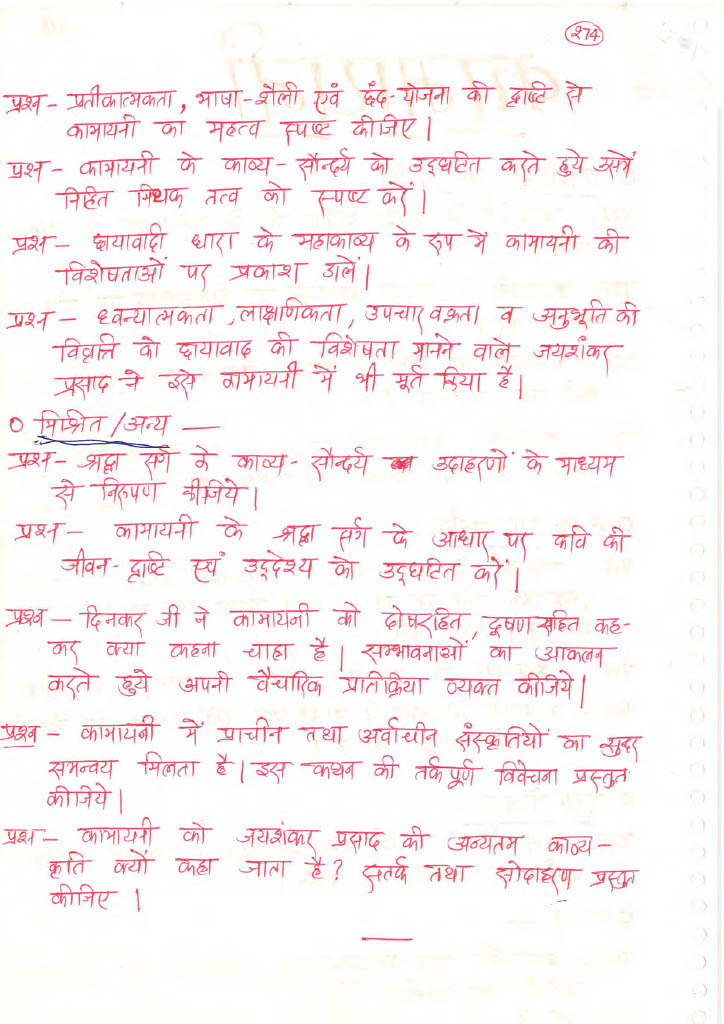 274
प्रश्न - प्रतीकात्मकता, भाषा-शैली एवं छंद-योजना की दृष्टि से
कामायनी का महत्व स्पष्ट कीजिए।
प्रश्न - कामायनी के काव्य-सौन्दर्य को उद्घटित करते हुये उसमें
निहित मिथक तत्व को स्पष्ट करें।
प्रश्न - छायावादी धारा के महाकाव्य के रूप में कामायनी की
विशेषताओं पर प्रकाश डालें।
प्रश्न - ध्वन्यात्मकता, लाक्षणिकता, उपचार वक्रता व अनुभूति की
विवृत्ति को छायावाद की विशेषता मानने वाले जयशंकर
प्रसाद ने इसे कामायनी में भी मूर्त किया है।
० मिश्रित/अन्य —
प्रश्न - श्रद्धा सर्ग के काव्य-सौन्दर्य उदाहरणों के माध्यम
से निरूपण कीजिये।
प्रश्न - कामायनी के श्रद्धा सर्ग के आधार पर कवि की
जीवन-दृष्टि एवं उद्देश्य को उद्घटित करें।
प्रश्न - दिनकर जी ने कामायनी को दोषरहित, दूषण सहित कह-
कर क्या कहना चाहा है। सम्भावनाओं का आकलन
करते हुये अपनी वैचारिक प्रतिक्रिया व्यक्त कीजिये।
प्रश्न - कामायनी में प्राचीन तथा अर्वाचीन संस्कृतियों का सुन्दर
समन्वय मिलता है। इस कथन की तर्कपूर्ण विवेचना प्रस्तुत
कीजिये।
प्रश्न - कामायनी को जयशंकर प्रसाद की अन्यतम काव्य-
कृति क्यों कहा जाता है? सतर्क तथा सोदाहरण प्रस्तुत
कीजिए।